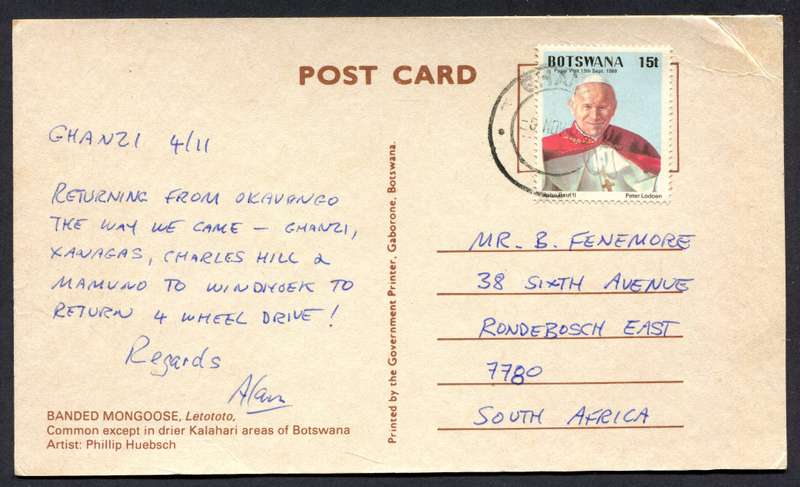 POST CARD
BOTSWANA 15t
Papal Visit 13th Sept. 1988
Peter Lodoen
GHANZI 4/11
RETURNING FROM OKAVANGO
THE WAY WE CAME - GHANZI,
XANAGAS, CHARLES HILL &
MAMUNO TO WINDHOEK TO
RETURN 4 WHEEL DRIVE!
Regards
Alan
BANDED MONGOOSE, Letototo,
Common except in drier Kalahari areas of Botswana
Artist: Phillip Huebsch
Printed by the Government Printer, Gaborone, Botswana.
MR. B. FENEMORE
38 SIXTH AVENUE
RONDEBOSCH EAST
7780
SOUTH AFRICA